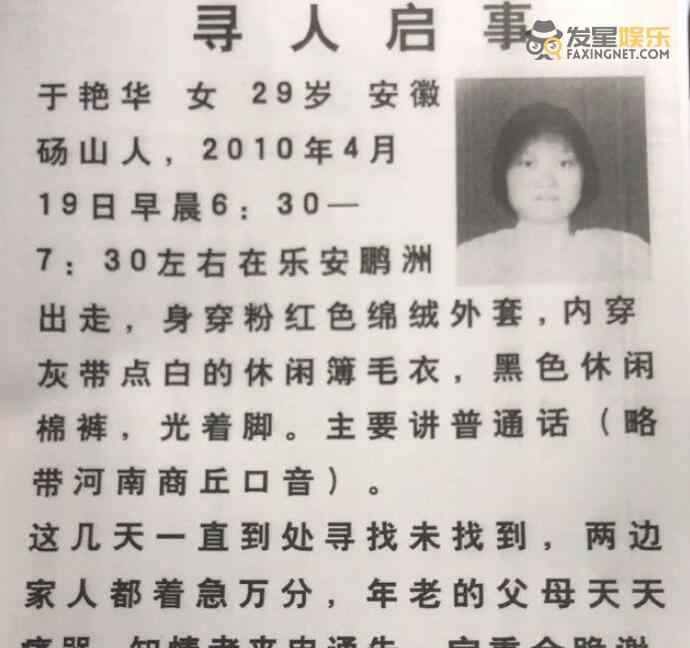 寻人启事
发星娱乐
FAXINGNET.COM
于艳华 女 29岁 安徽
砀山人，2010年4月
19日早晨6：30—
7：30左右在乐安鹏洲
出走，身穿粉红色绵绒外套，内穿
灰带点白的休闲簿毛衣，黑色休闲
棉裤，光着脚。主要讲普通话（略
带河南商丘口音）。
这几天一直到处寻找未找到，两边
家人都着急万分，年老的父母天天
痛哭 知情者来电通告 定重金酬谢